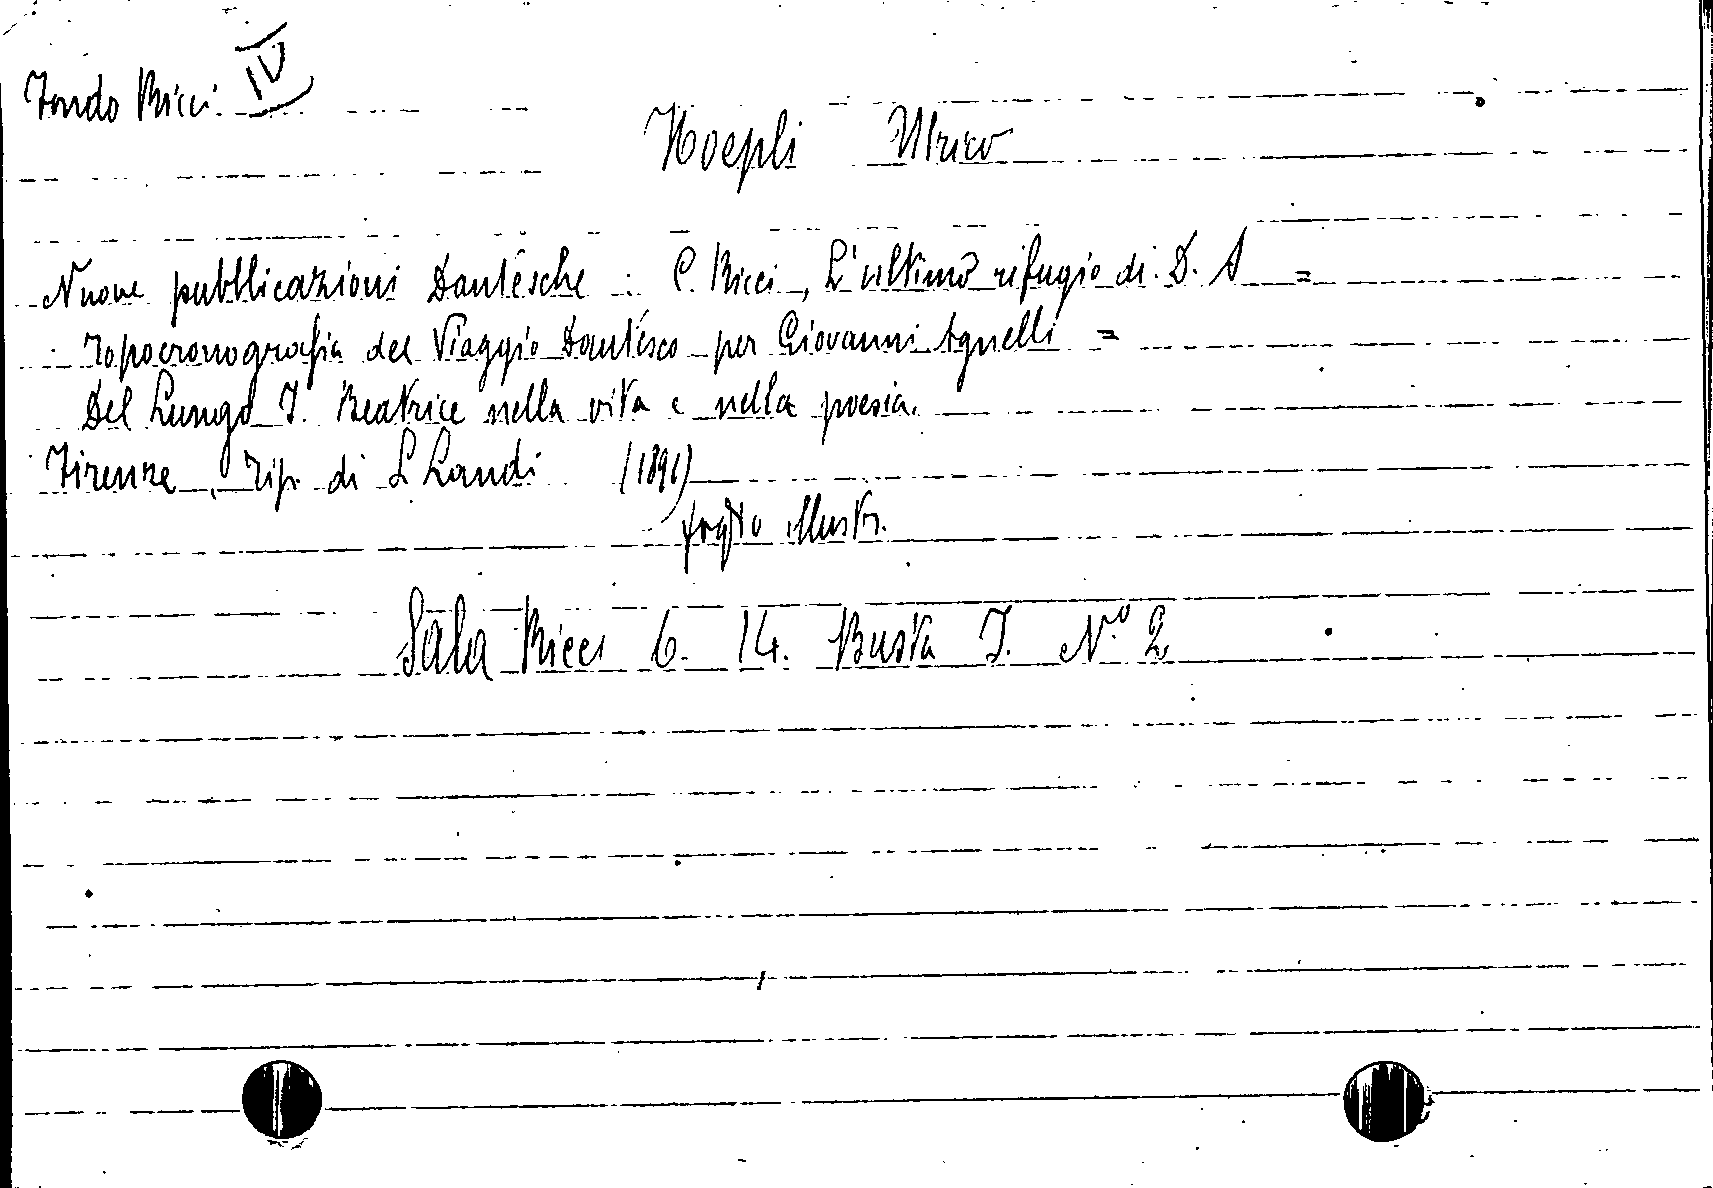 Fondo Ricci IV
Hoepli Ulrico
Nuove pubblicazioni Dantesche : C. Ricci, L'ultimo rifugio di D. A =
Topocronografia del Viaggio Dantesco per Giovanni Agnelli =
Del Lungo I. Beatrice nella vita e nella poesia.
Firenze, Tip. di S Landi (1891)
foglio illustr.
Sala Ricci 6. 14. Busta I. N.° 2